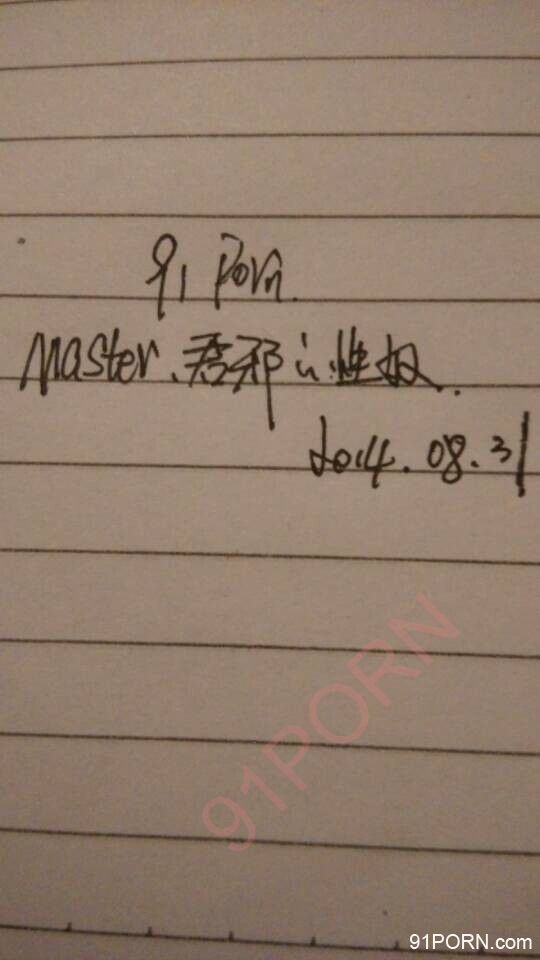 91 Porn.
Master、君邪の性奴.
2014.08.31
91PORN
91PORN.com